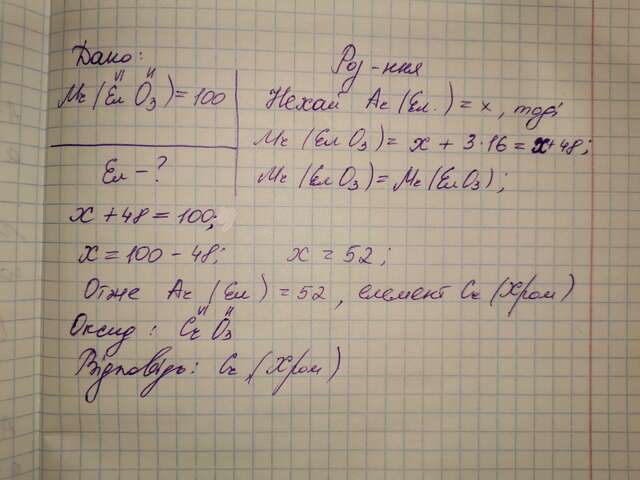 Дано:
Mr(ЕлO3)=100
VI II
Ел-?
Роз-ння
Нехай Ar(Ел.)=x, тоді
Mr(ЕлO3)= x + 3·16 = x+48;
Mr(ЕлO3)=Mr(ЕлO3);
x+48=100;
x=100-48; x=52;
Отже Ar(Ел)=52, елемент Cr(Хром)
VI II
Оксид: CrO3
Відповідь: Cr (Хром)